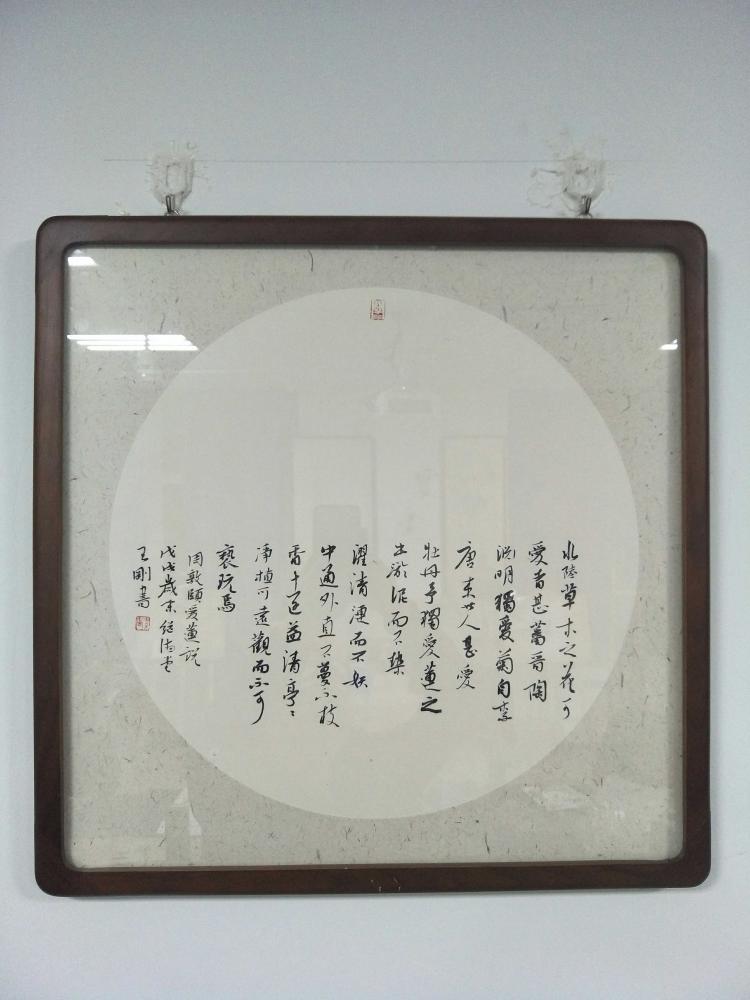 水陸草木之花可
愛者甚蕃晋陶
淵明獨愛菊自李
唐来世人甚愛
牡丹予獨愛蓮之
出淤泥而不染
濯清漣而不妖
中通外直不蔓不枝
香遠益清亭〻
淨植可遠觀而不可
褻玩焉
周敦頤愛蓮說
戊戌歲末
王剛書